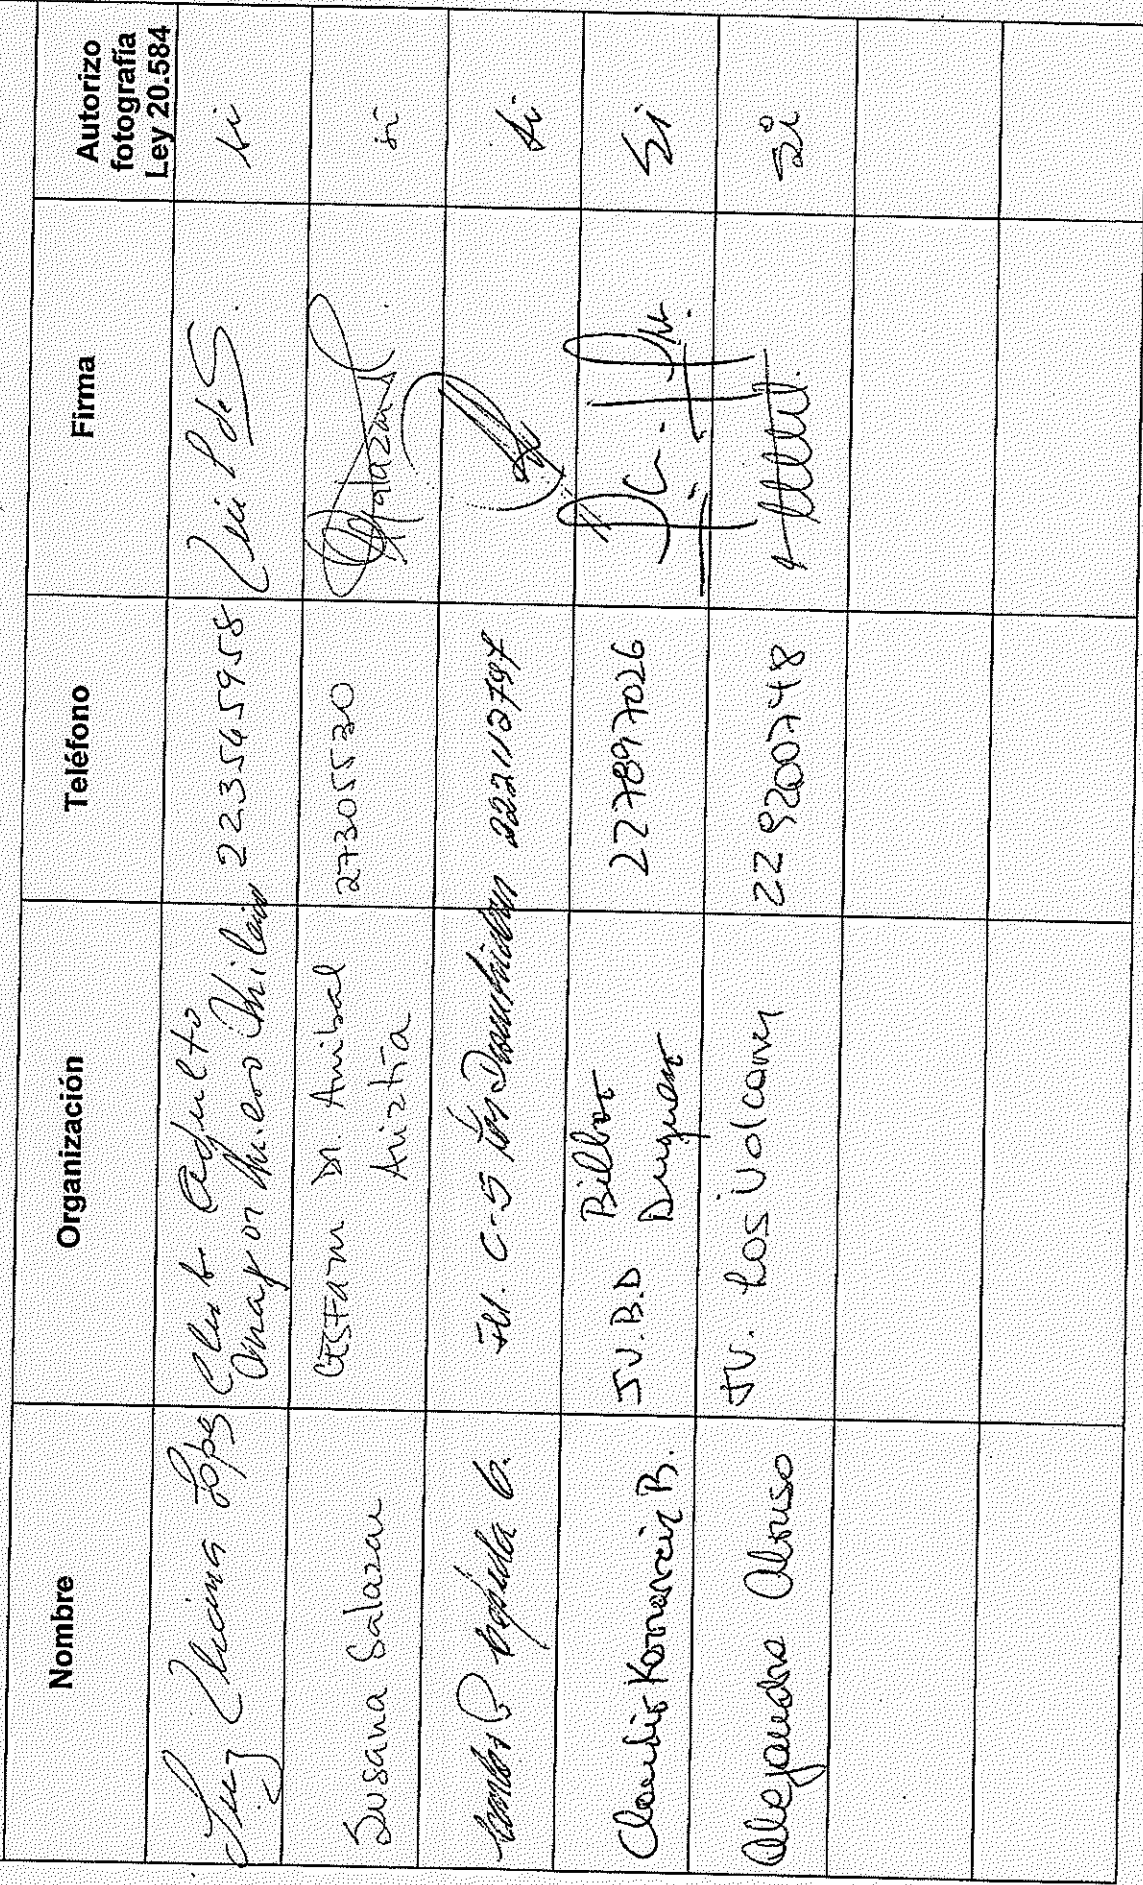 Nombre
Organización
Teléfono
Firma
Autorizo
fotografía
Ley 20.584
Luz Ximena López
Club Adulto
Mayor Nuevo Milenio
223565958
si
Susana Salazar
CESFAM Dr. Anibal
Ariztía
27305530
Salazar
si
C-5
222112797
si
Claudio B.
J.V.B.D Bilbao
Duqueco
227897026
Si
Alejandra Alonso
JV. Los Volcanes
229200748
si